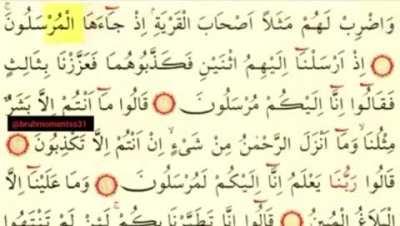 وَاضْرِبْ لَهُمْ مَثَلًا اَصْحَابَ الْقَرْيَةِۢ اِذْ جَٓاءَهَا الْمُرْسَلُونَۚ
اِذْ اَرْسَلْنَٓا اِلَيْهِمُ اثْنَيْنِ فَكَذَّبُوهُمَا فَعَزَّزْنَا بِثَالِثٍ
فَقَالُٓوا اِنَّٓا اِلَيْكُمْ مُرْسَلُونَ قَالُوا مَٓا اَنْتُمْ اِلَّا بَشَرٌ
@bruhmomentss31
مِثْلُنَاۙ وَمَٓا اَنْزَلَ الرَّحْمٰنُ مِنْ شَيْءٍۙ اِنْ اَنْتُمْ اِلَّا تَكْذِبُونَ
قَالُوا رَبُّنَا يَعْلَمُ اِنَّٓا اِلَيْكُمْ لَمُرْسَلُونَ وَمَا عَلَيْنَٓا اِلَّا
الْبَلَاغُ الْمُبينُ قَالُٓوا اِنَّا تَطَيَّرْنَا بِكُمْۚ لَئِنْ لَمْ تَنْتَهُوا